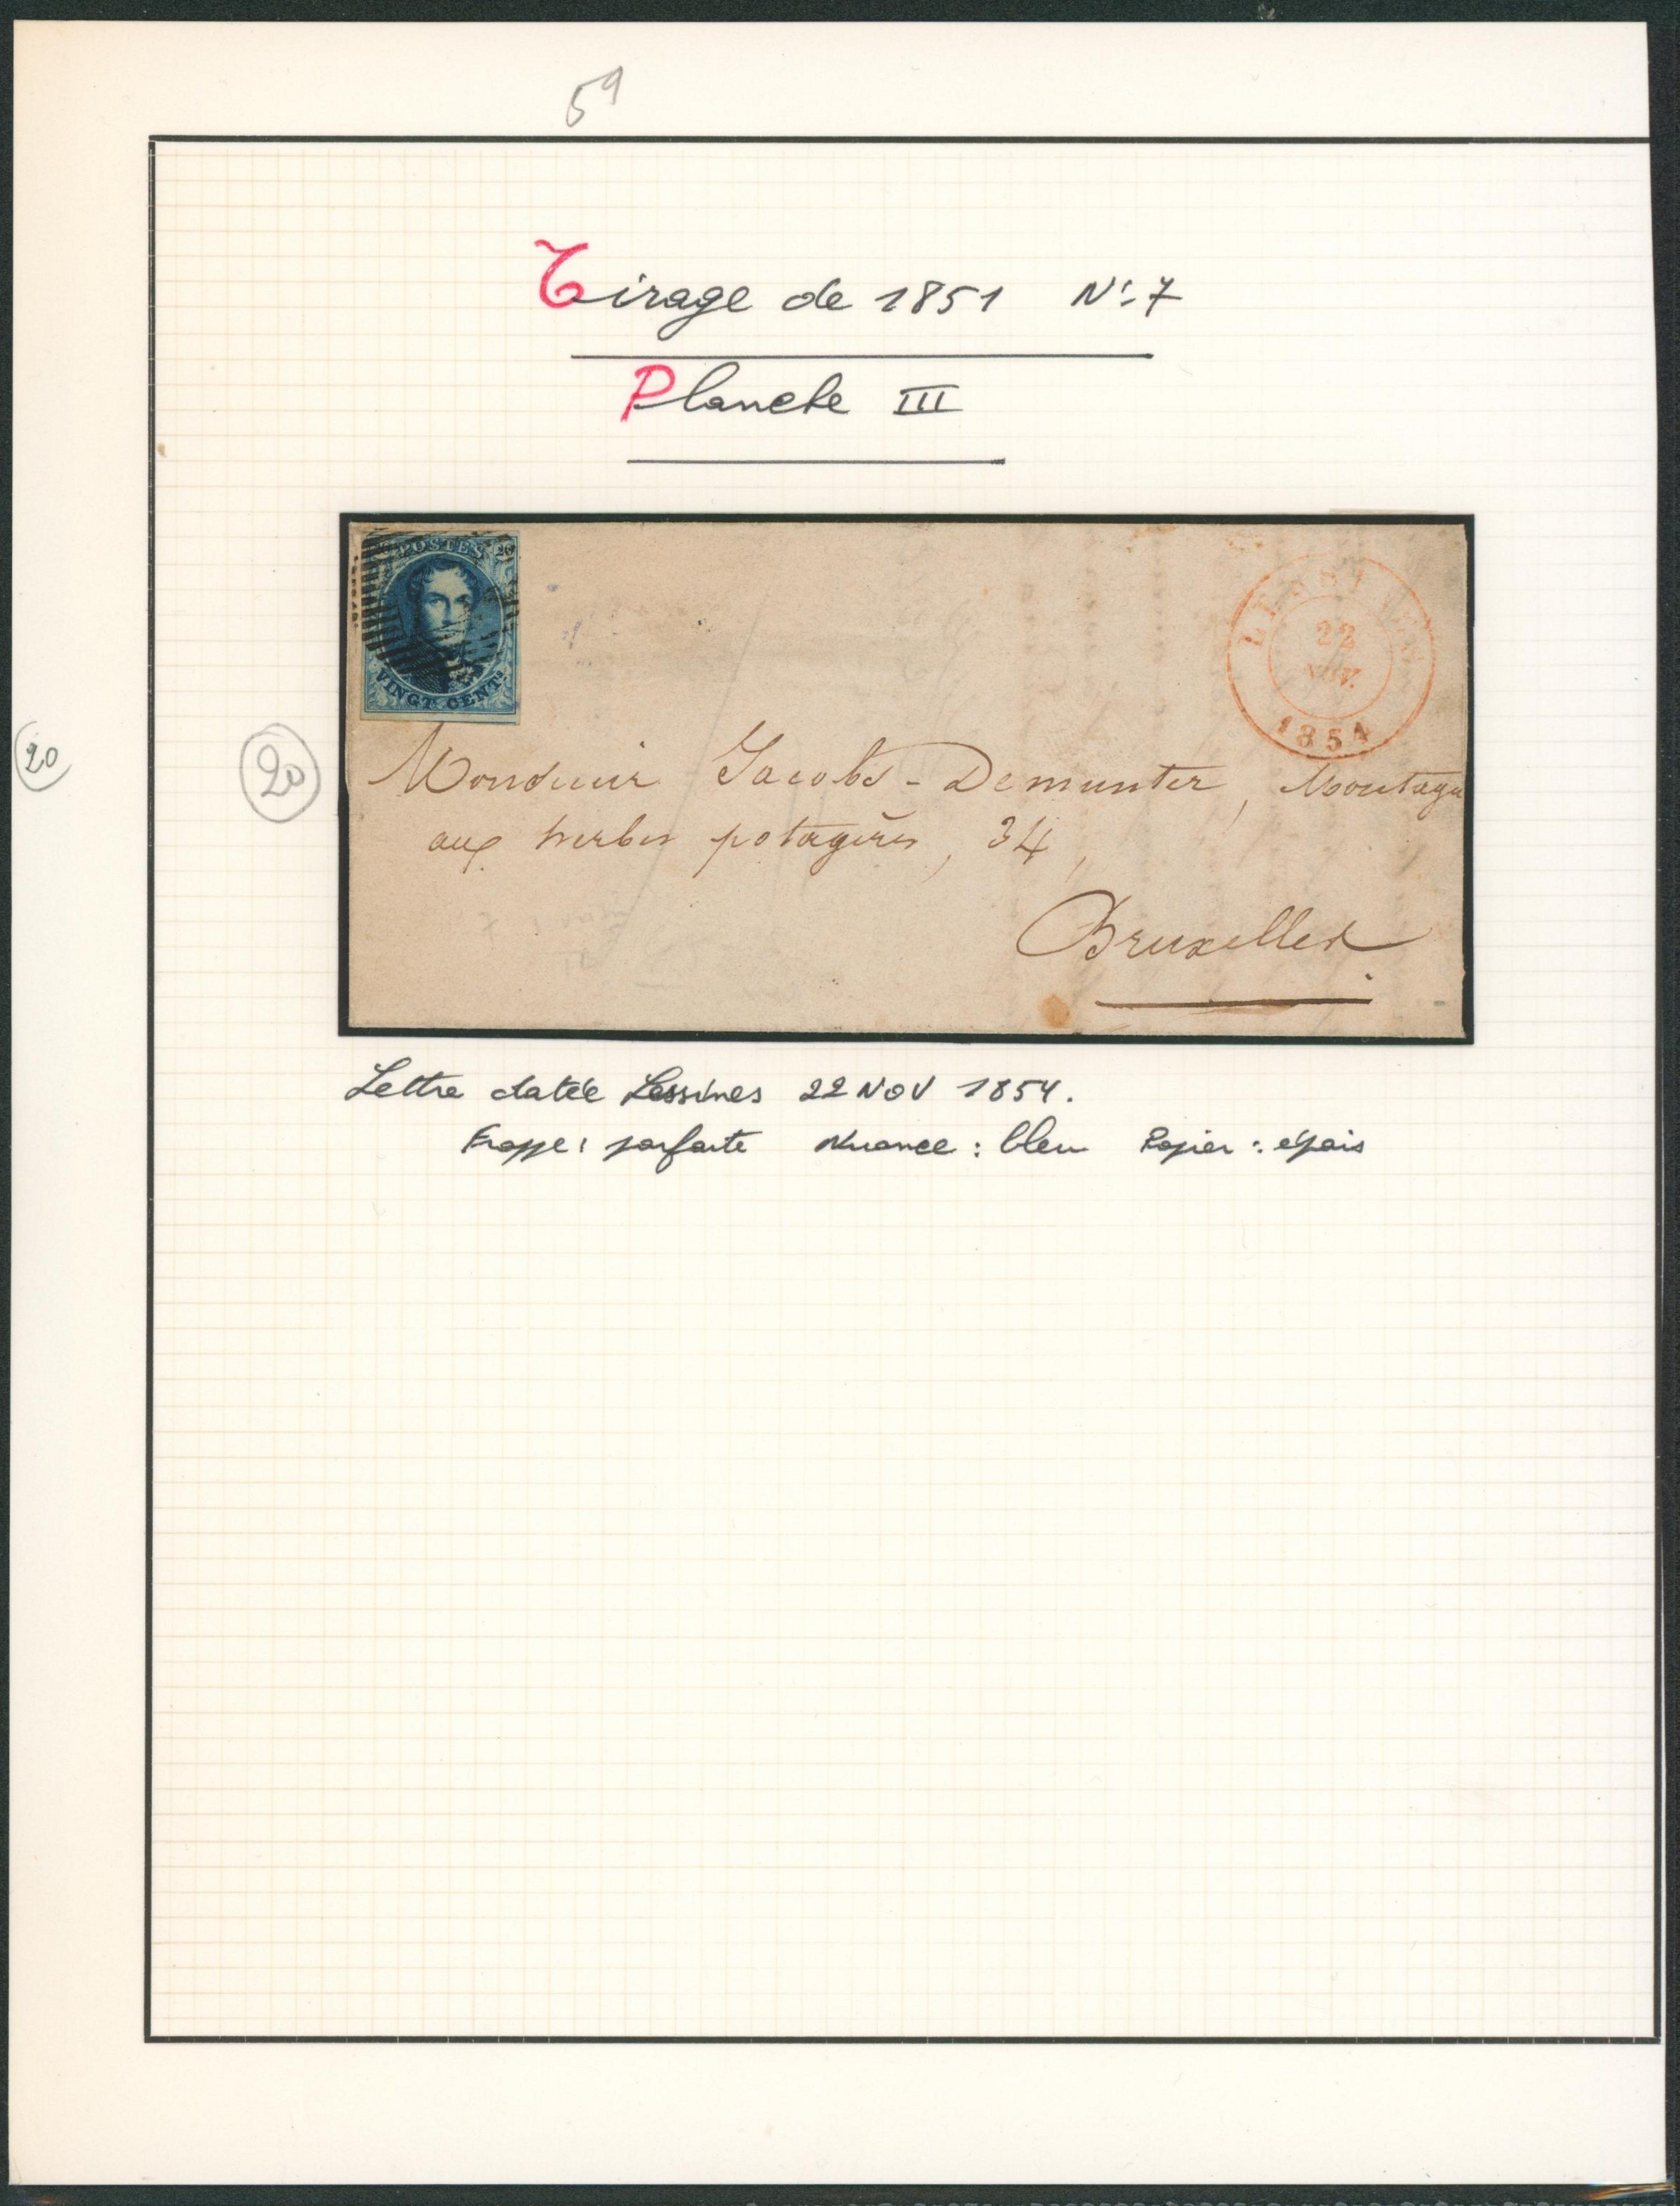 59
Tirage de 1851 N° 7
Planche III
POSTES 20
VINGT CENTS
22
NOV.
1854
20
20
Monsieur Jacobs-Demunter, Montagne
aux herbes potagères, 34,
Bruxelles
Lettre datée Lessines 22 NOV 1854.
Frappe: parfaite Nuance: bleu Papier: épais